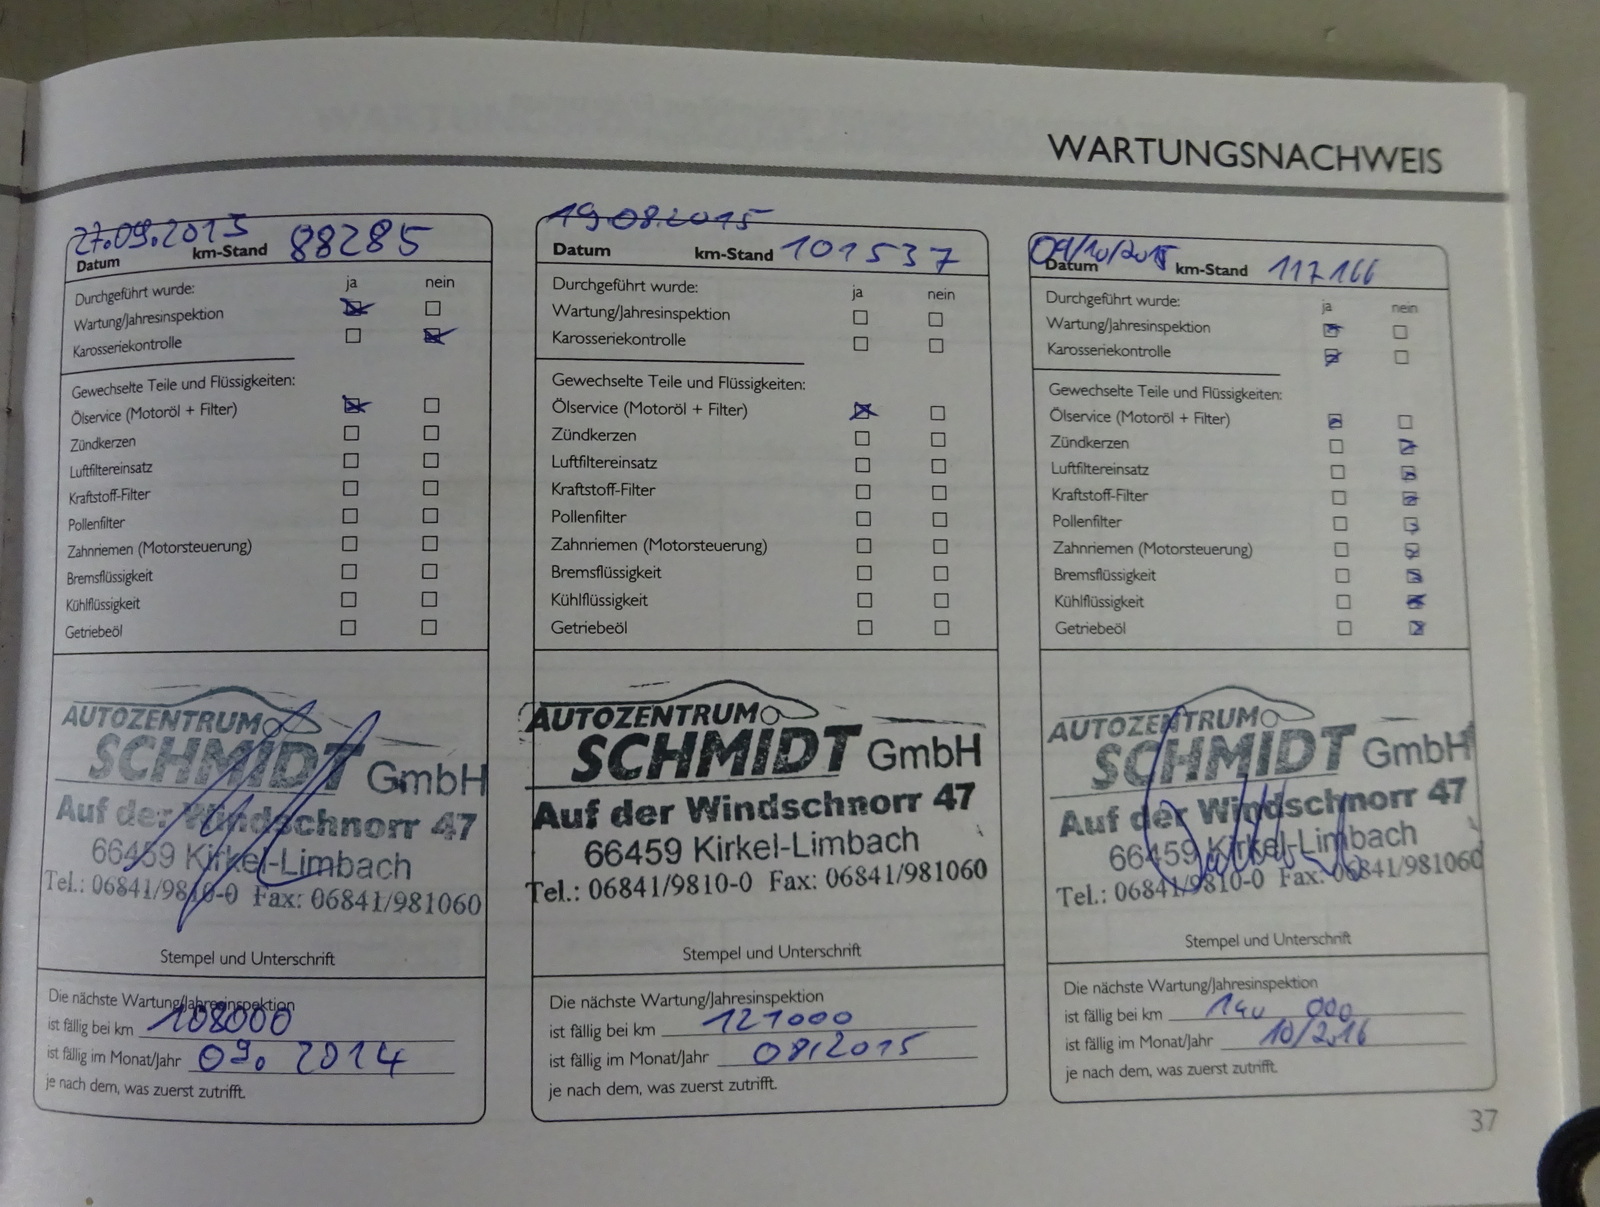 WARTUNGSNACHWEIS
27.09.2013 88285
Datum km-Stand
Durchgeführt wurde: ja nein
Wartung/Jahresinspektion
Karosseriekontrolle
Gewechselte Teile und Flüssigkeiten:
Ölservice (Motoröl + Filter)
Zündkerzen
Luftfiltereinsatz
Kraftstoff-Filter
Pollenfilter
Zahnriemen (Motorsteuerung)
Bremsflüssigkeit
Kühlflüssigkeit
Getriebeöl
AUTOZENTRUM
SCHMIDT GmbH
Auf der Windschnorr 47
66459 Kirkel-Limbach
Tel.: 06841/9810-0 Fax: 06841/981060
Stempel und Unterschrift
Die nächste Wartung/Jahresinspektion
ist fällig bei km 108000
ist fällig im Monat/Jahr 09. 2014
je nach dem, was zuerst zutrifft.
19.08.2015
Datum km-Stand 101537
Durchgeführt wurde: ja nein
Wartung/Jahresinspektion
Karosseriekontrolle
Gewechselte Teile und Flüssigkeiten:
Ölservice (Motoröl + Filter)
Zündkerzen
Luftfiltereinsatz
Kraftstoff-Filter
Pollenfilter
Zahnriemen (Motorsteuerung)
Bremsflüssigkeit
Kühlflüssigkeit
Getriebeöl
AUTOZENTRUM
SCHMIDT GmbH
Auf der Windschnorr 47
66459 Kirkel-Limbach
Tel.: 06841/9810-0 Fax: 06841/981060
Stempel und Unterschrift
Die nächste Wartung/Jahresinspektion
ist fällig bei km 121000
ist fällig im Monat/Jahr 08/2015
je nach dem, was zuerst zutrifft.
Datum km-Stand 117166
Durchgeführt wurde: ja nein
Wartung/Jahresinspektion
Karosseriekontrolle
Gewechselte Teile und Flüssigkeiten:
Ölservice (Motoröl + Filter)
Zündkerzen
Luftfiltereinsatz
Kraftstoff-Filter
Pollenfilter
Zahnriemen (Motorsteuerung)
Bremsflüssigkeit
Kühlflüssigkeit
Getriebeöl
AUTOZENTRUM
SCHMIDT GmbH
Auf der Windschnorr 47
66459 Kirkel-Limbach
Tel.: 06841/9810-0 Fax: 06841/981060
Stempel und Unterschrift
Die nächste Wartung/Jahresinspektion
ist fällig bei km 140 000
ist fällig im Monat/Jahr 10/2016
je nach dem, was zuerst zutrifft.
37